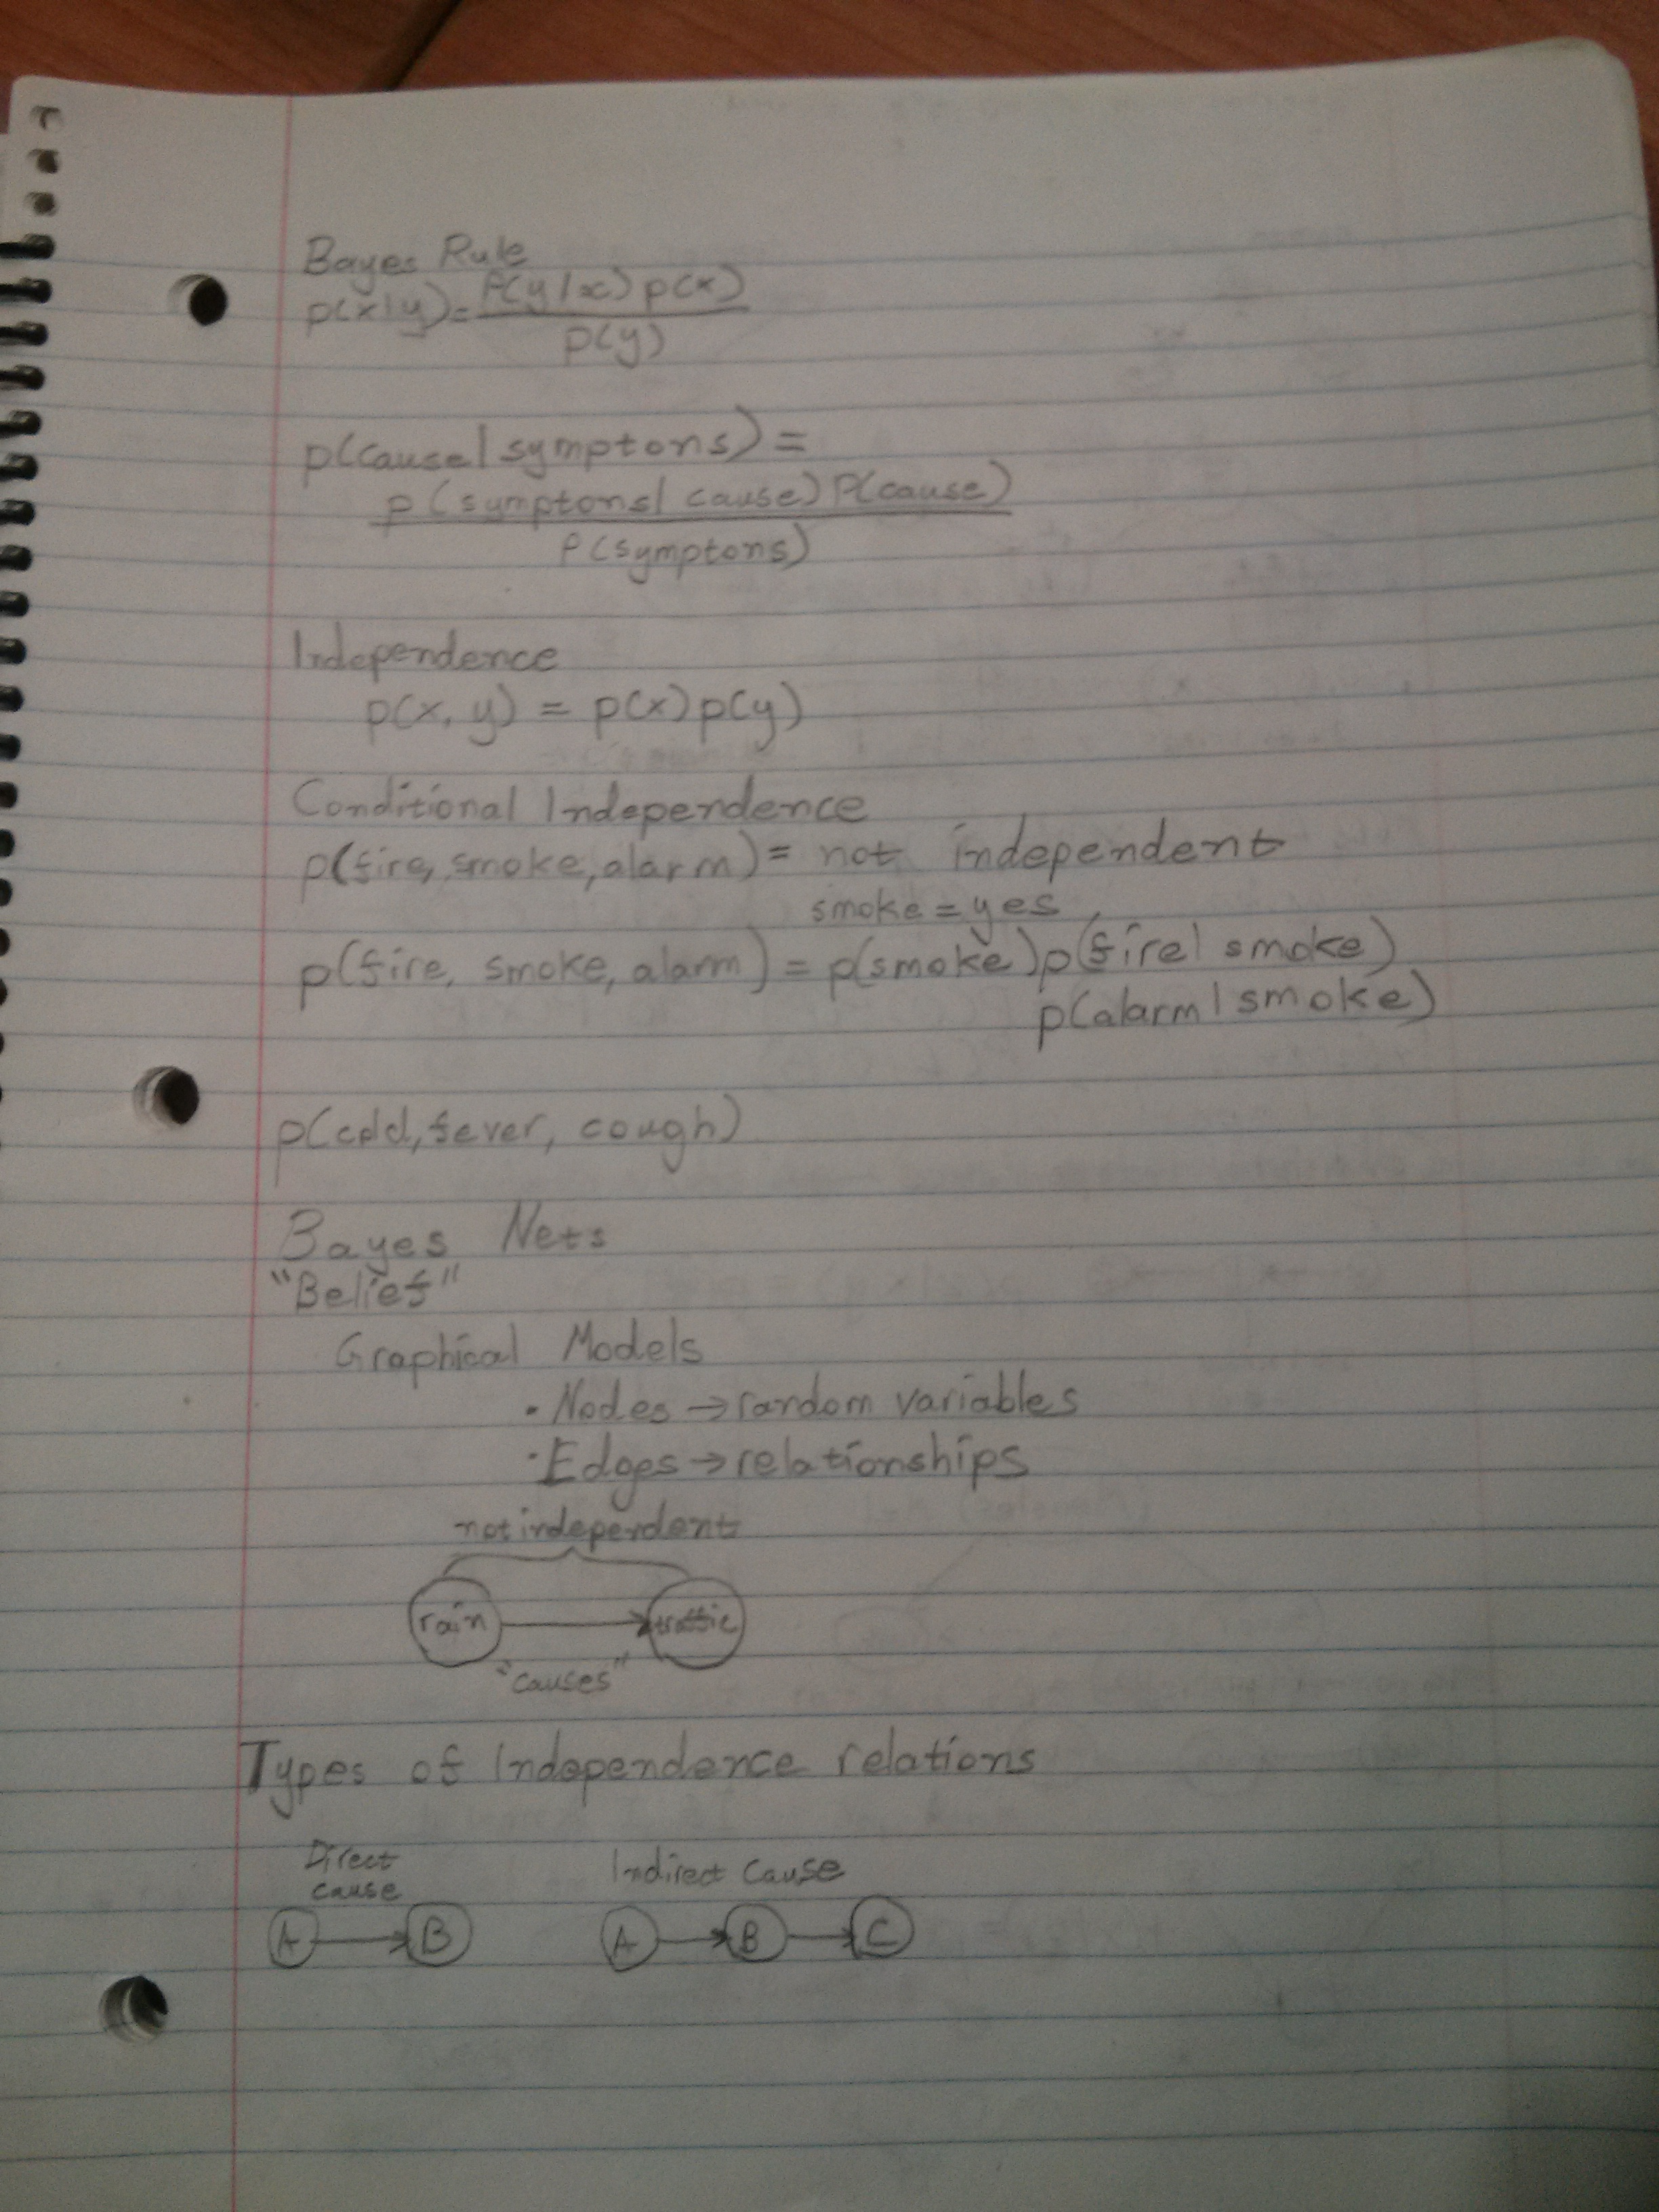 Bayes Rule
p(x|y) = P(y|x) p(x)
p(y)
p(cause|symptons) =
p(symptons|cause) P(cause)
P(symptons)
Independence
p(x, y) = p(x) p(y)
Conditional Independence
p(fire, smoke, alarm) = not independent
smoke = yes
p(fire, smoke, alarm) = p(smoke) p(fire| smoke)
p(alarm|smoke)
p(cold, fever, cough)
Bayes Nets
"Belief"
Graphical Models
• Nodes → random variables
• Edges → relationships
not independent
rain traffic
"causes"
Types of Independence relations
Direct cause
Indirect Cause
A B
A B C